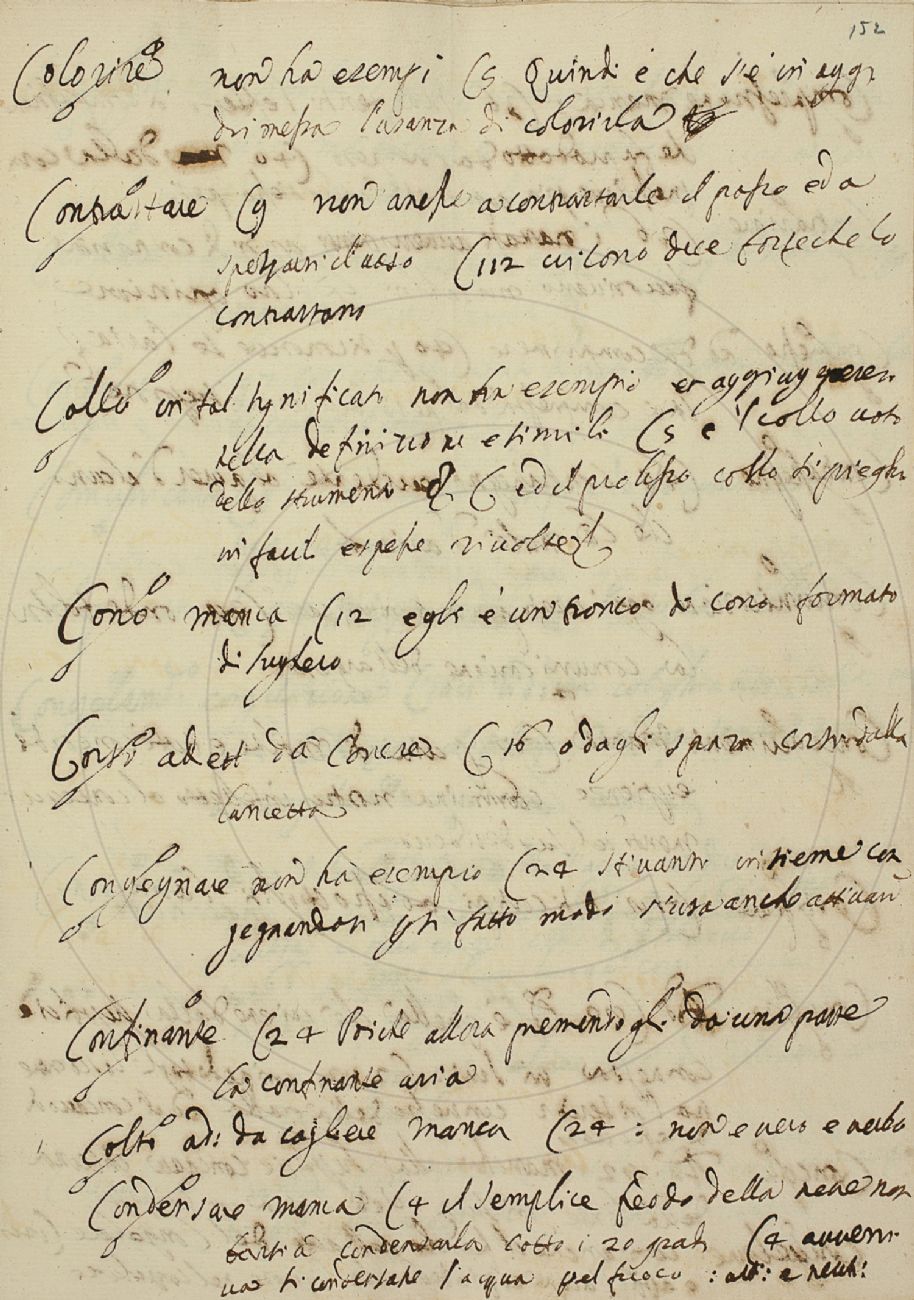 152
Colorire non ha esempi (5 Quindi è che s'è in oggi
dimessa l'usanza di colorirla
Contrastare (9 non avesse a contrastarle il passo ed a
(112 di loro dice forse che lo
contrastano
Collo in tal significato non ha esempio et aggiugnere
nella definizione e simili (5 e 'l collo voto
dello strumento (ed il prolisso collo si pieghi
in facil e spesse rivolte
Cono manca (12 egli è un tronco di cono formato
di sughero
Corso ad: da Correre (16 o dagli spazi corsi dalla
lancetta
Congegnare non ha esempio (24 stivansi insieme con
gegnandosi in sì fatto modo
Confinante (24 Poiche allora premendogli da una parte
la confinante aria
Colto ad: da cogliere manca (24 : non e vero e verbo
Condensare manca (4 il semplice freddo della neve non
basti a condensarla sotto i 20 gradi (4 avveni
va si condensare l'acqua pel fuoco : att: e neut: